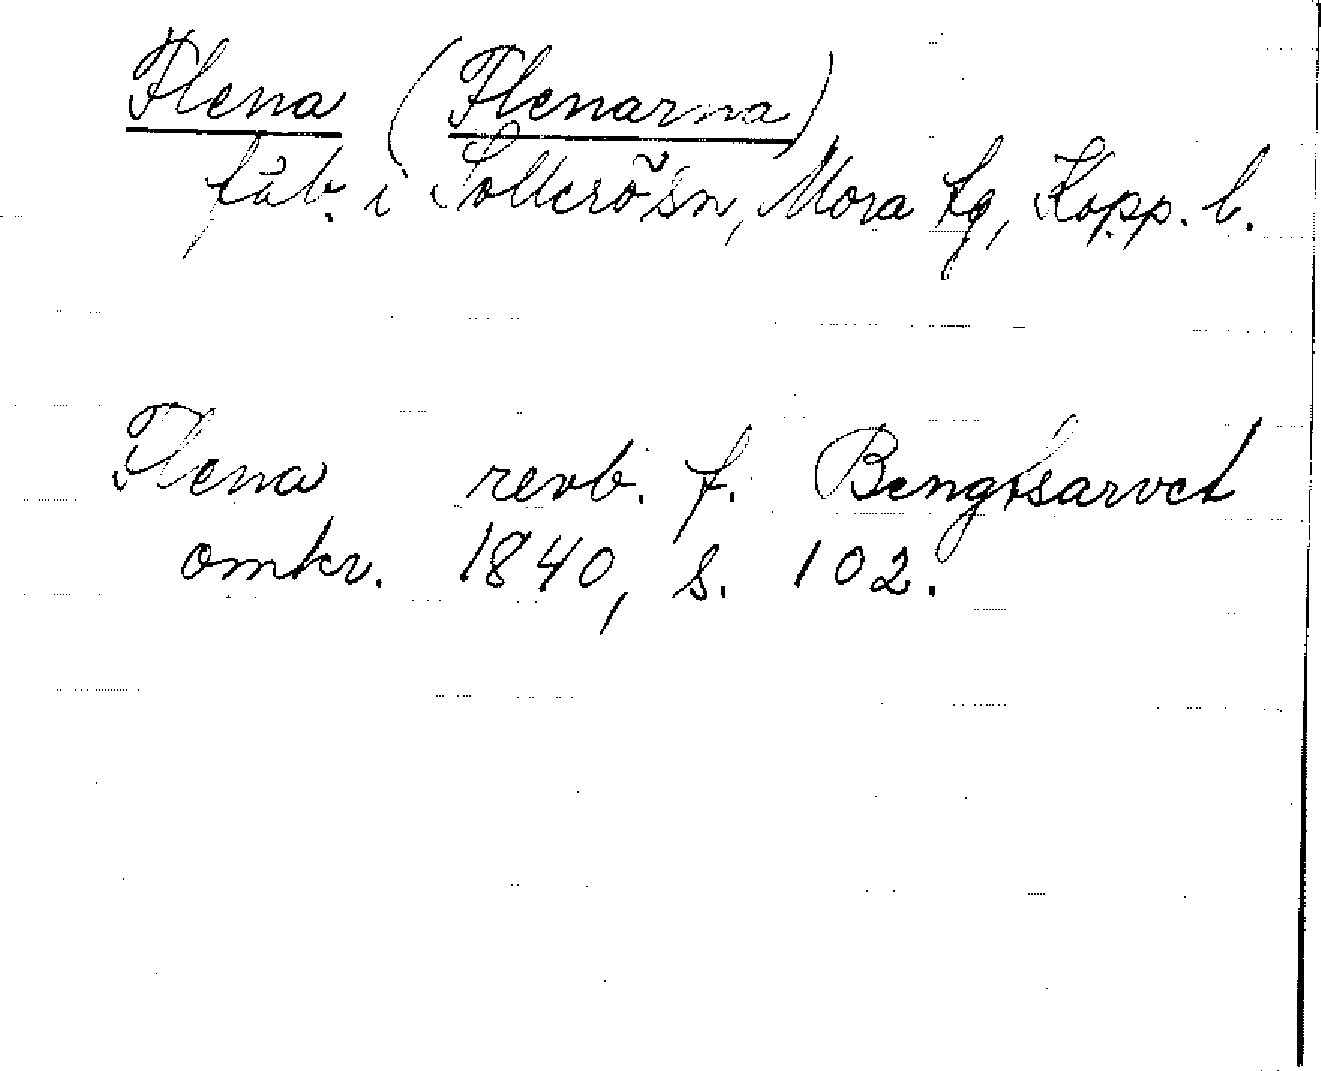 Flena (Flenarna)
fäb. i Sollerö sn, Mora tg, Kopp. l.
Flena revb. f. Bengtsarvet
omkr. 1840, s. 102.